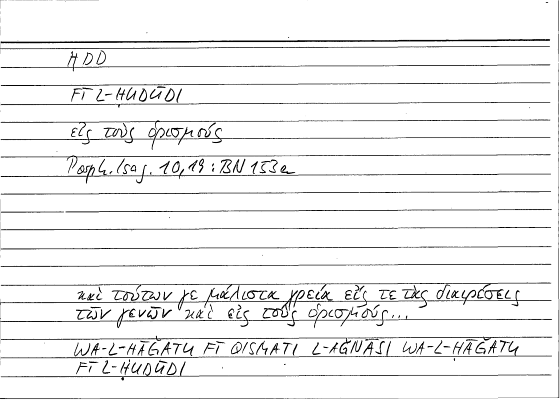 ḤDD
FĪ L-ḤUDŪDI
εἰς τοὺς ὁρισμούς
Porph. Isag. 10,19 : BN 153a
καὶ τούτων γε μάλιστα χρεία εἴς τε τὰς διαιρέσεις
τῶν γενῶν καὶ εἰς τοὺς ὁρισμούς...
WA-L-ḤĀǦATU FĪ QISMATI L-AǦNĀSI WA-L-ḤĀǦATU
FĪ L-ḤUDŪDI